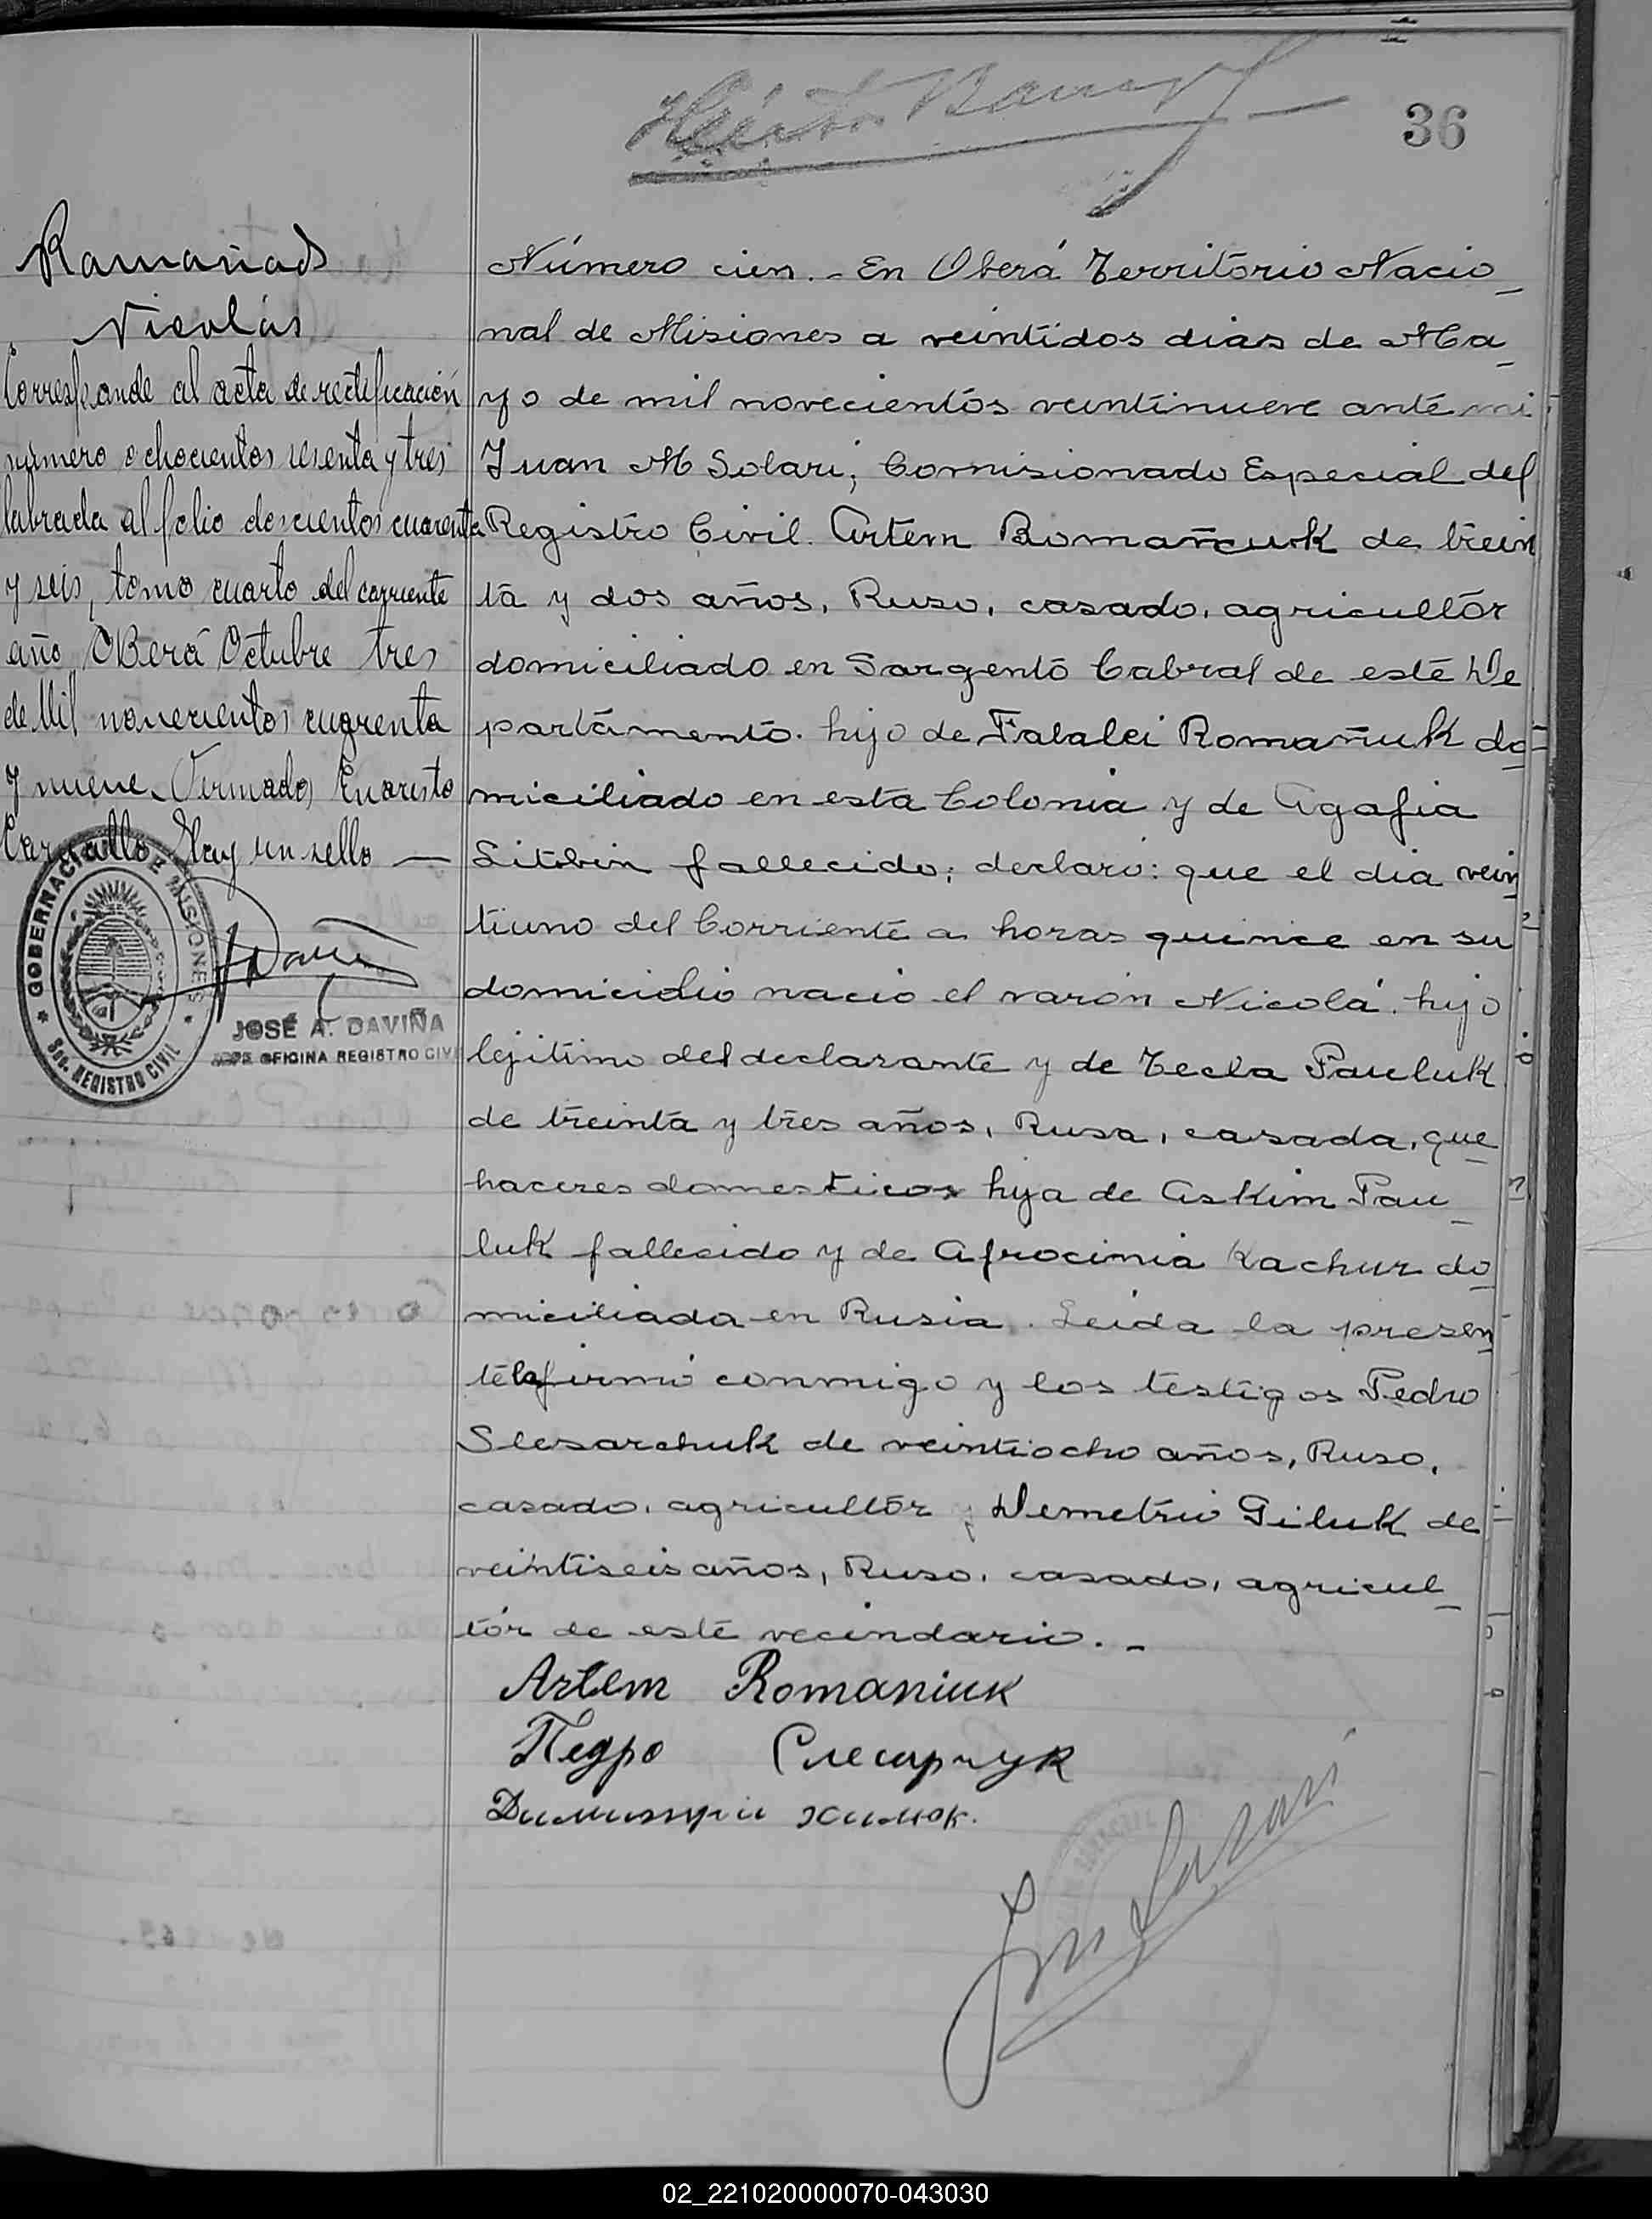 36
Nicolás
Corresponde al acta de rectificación
número ochocientos sesenta y tres
labrada al folio doscientos cuarenta
y seis, tomo cuarto del corriente
año OBerá Octubre tres
de Mil novecientos cuarenta
y nueve. Firmado, Evaristo
Carvallo Hay un sello —
GOBERNACION DE MISIONES
Sec. REGISTRO CIVIL
JOSÉ A. DAVIÑA
JEFE OFICINA REGISTRO CIVIL
Número cien. - En Oberá Territorio Nacio_
nal de Misiones a veintidos dias de Ma_
yo de mil novecientos veintinueve ante mi
Juan M Solari, Comisionado Especial del
Registro Civil. Artem Romañcuk de trein
ta y dos años, Ruso, casado, agricultor
domiciliado en Sargento Cabral de este De
partamento. hijo de Falalei Romañuk do_
miciliado en esta Colonia y de Agafia
Sitobin fallecido; declaró: que el dia vein_
tiuno del Corriente a horas quince en su
domicidio nació el varón Nicolá. hijo
lejitimo del declarante y de Tecla Pauluk
de treinta y tres años, Rusa, casada, que_
haceres domesticos hija de Askim Pau_
luk fallecido y de Afrocinia Kachur do_
miciliada en Rusia. Leida la presen_
te la firmó conmigo y los testigos Pedro
Slesarchuk de veintiocho años, Ruso,
casado, agricultor y Demetrio Giluk de
veintiseis años, Ruso, casado, agricul_
tor de este vecindario. -
Artem Romaniuk
Педро Слесарчук
Димитрiи Хилюк.
02_221020000070-043030